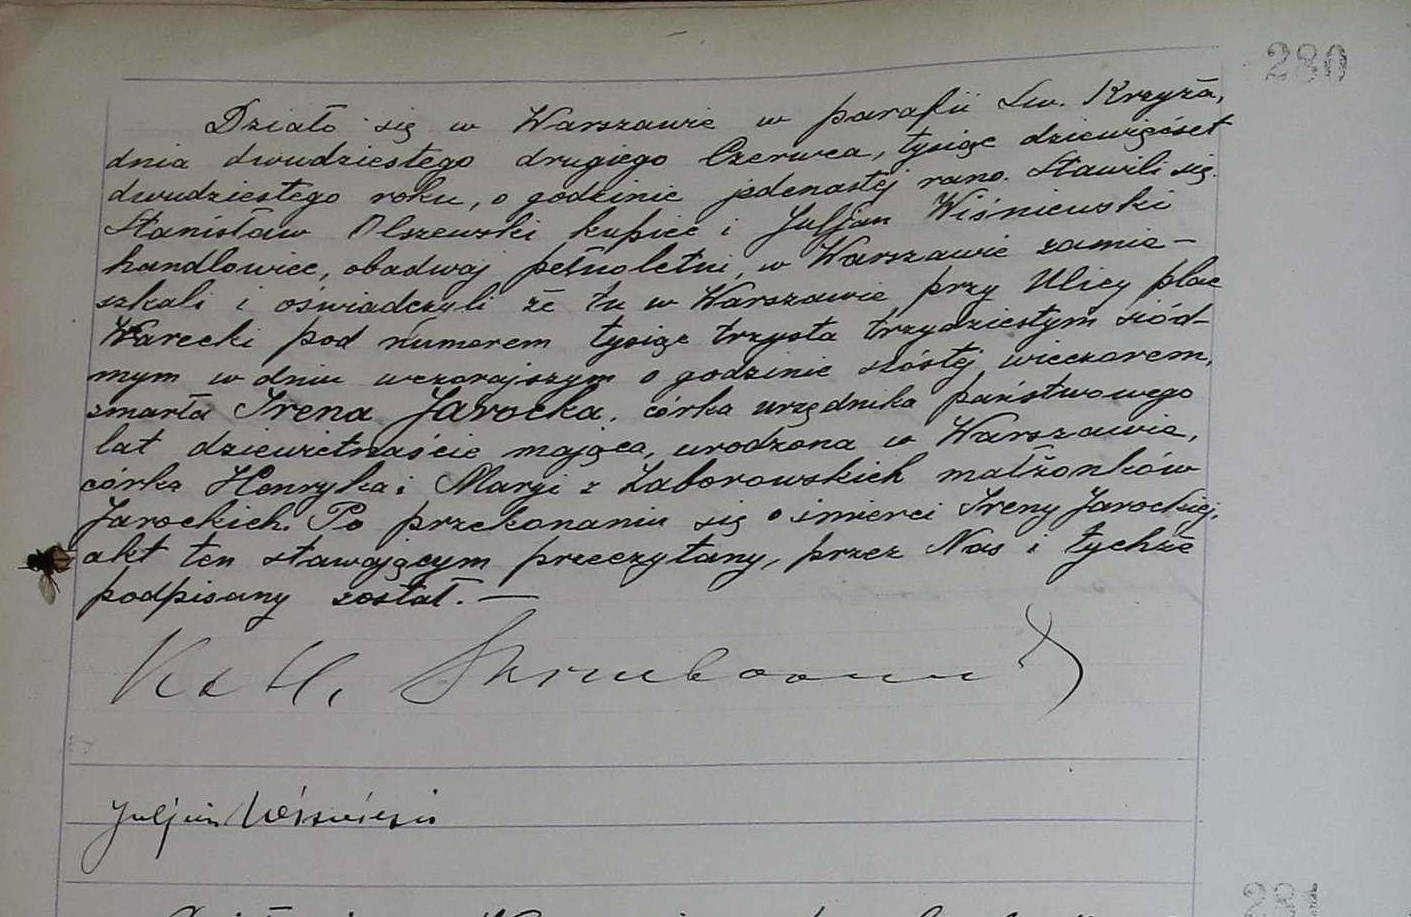 280
Działo się w Warszawie w parafii Św. Krzyża,
dnia dwudziestego drugiego Czerwca, tysiąc dziewięćset
dwudziestego roku, o godzinie jedenastej rano. Stawili się
Stanisław Olszewski kupiec i Juljan Wiśniewski
handlowiec, obadwaj pełnoletni, w Warszawie zamie-
szkali i oświadczyli że tu w Warszawie przy Ulicy plac
Warecki pod numerem tysiąc trzysta trzydziestym siód-
mym w dniu wczorajszym o godzinie szóstej wieczorem,
zmarła Irena Jarocka, córka urzędnika państwowego
lat dziewietnaście mająca, urodzona w Warszawie,
córka Henryka i Maryi z Zaborowskich małżonków
Jarockich. Po przekonaniu się o śmierci Ireny Jarockiej,
akt ten stawającym przeczytany, przez Nas i tychże
podpisany został. —
Juljan Wiśniewski
281